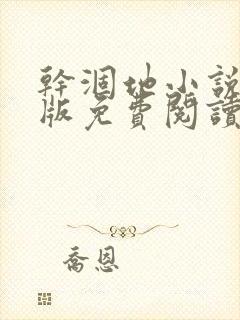 幹涸地小說
版免費閱讀
喬恩